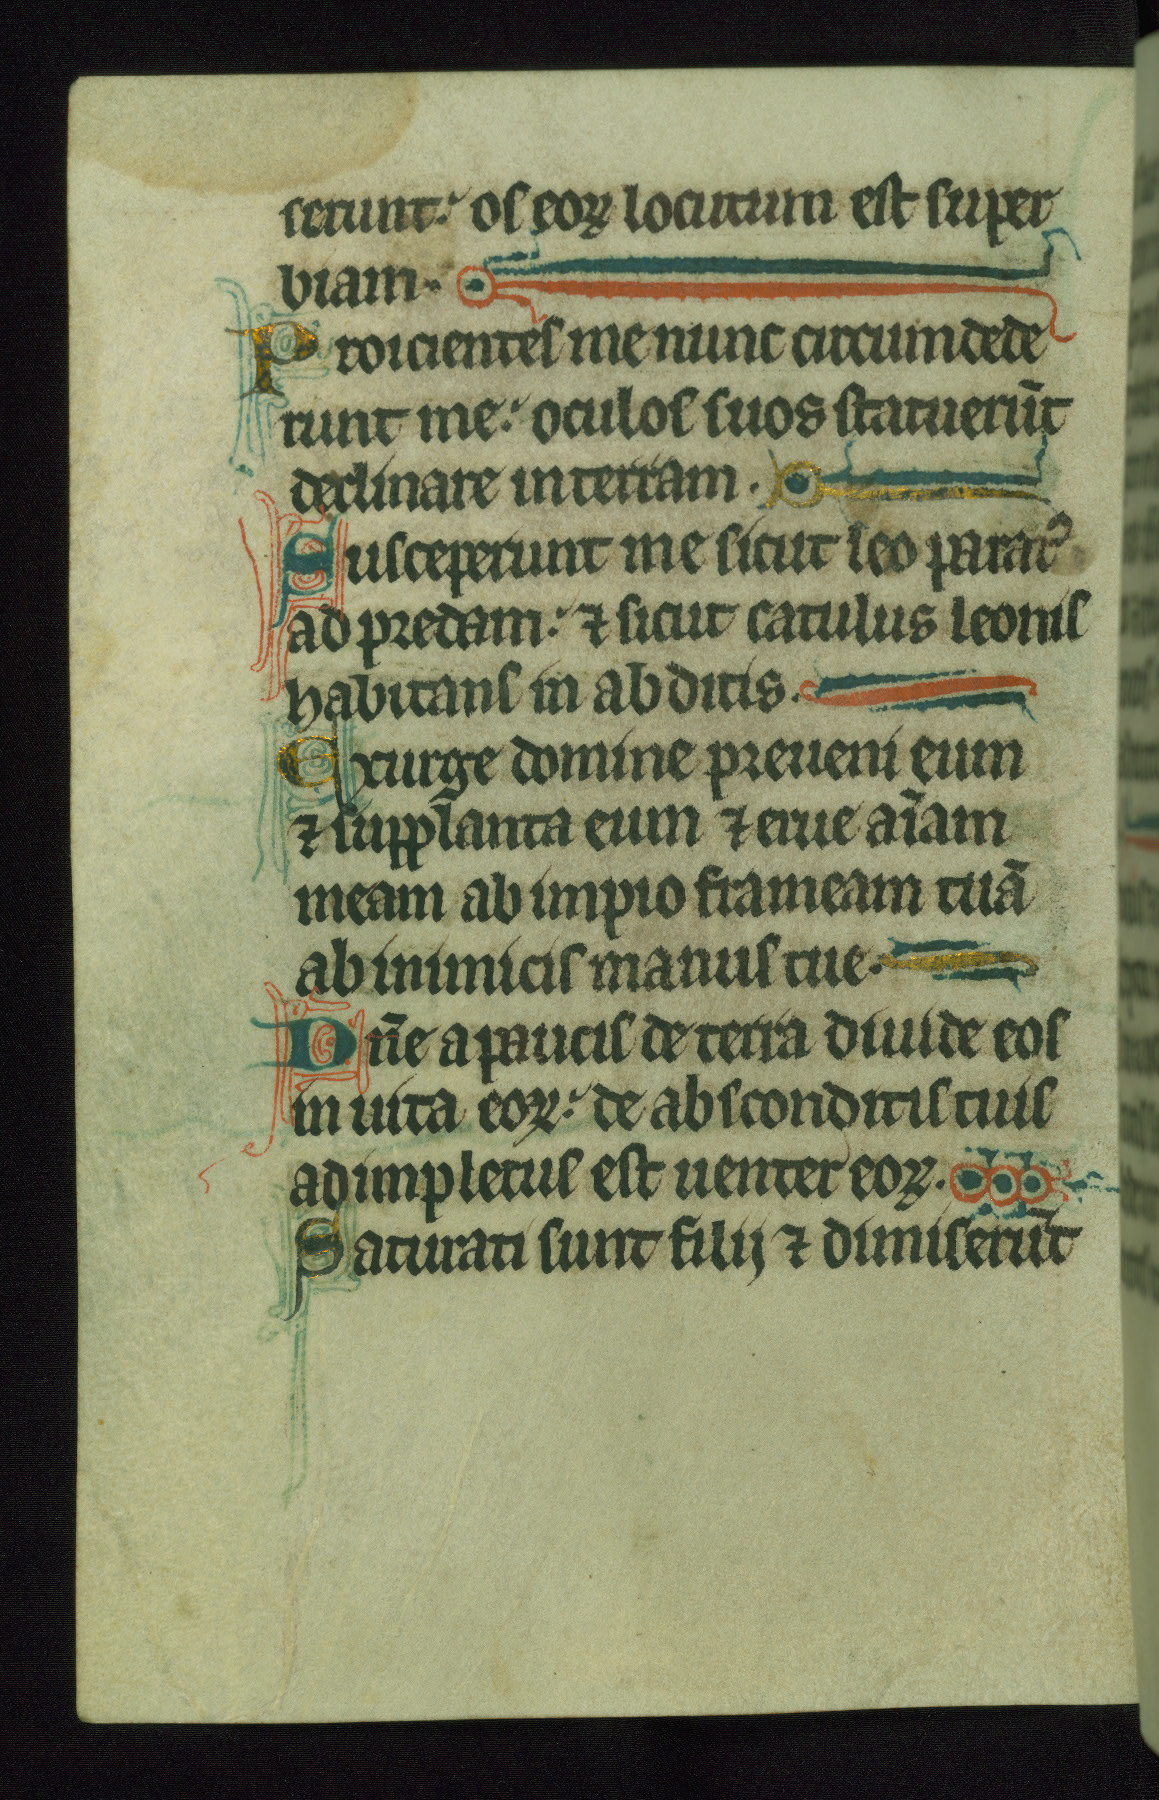 serunt: os eoꝝ locutum est super
biam.
Proicientes me nunc circumdede
runt me: oculos suos statuerūt
declinare in terram.
Susceperunt me sicut leo paratꝰ
ad predam: ⁊ sicut catulus leonis
habitans in abditis.
Exurge domine preueni eum
⁊ supp̄lanta eum ⁊ erue aīam
meam ab impio frameam tuā
ab inimicis manus tue.
Dn̄e a paucis de terra diuide eos
in uita eoꝝ: de absconditis tuis
adimpletus est uenter eoꝝ.
Saturati sunt filij ⁊ dimiserūt